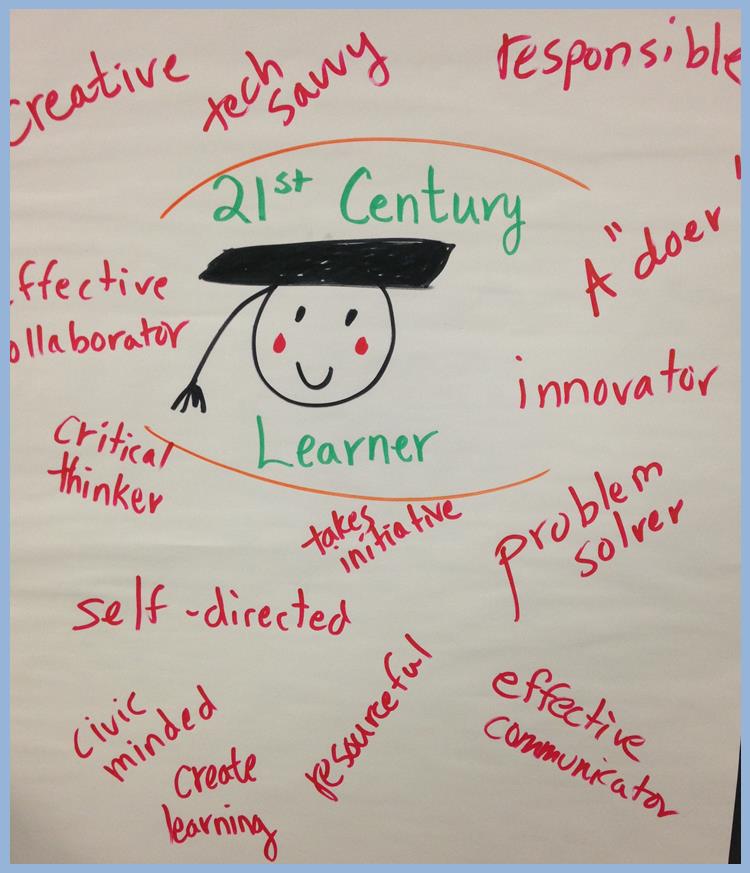 creative
tech
savvy
responsible
21st Century
A "doer"
ffective
ollaborator
innovator
Learner
Critical
thinker
takes
initiative
problem
solver
self-directed
civic
minded
resourceful
effective
communicator
Create
learning